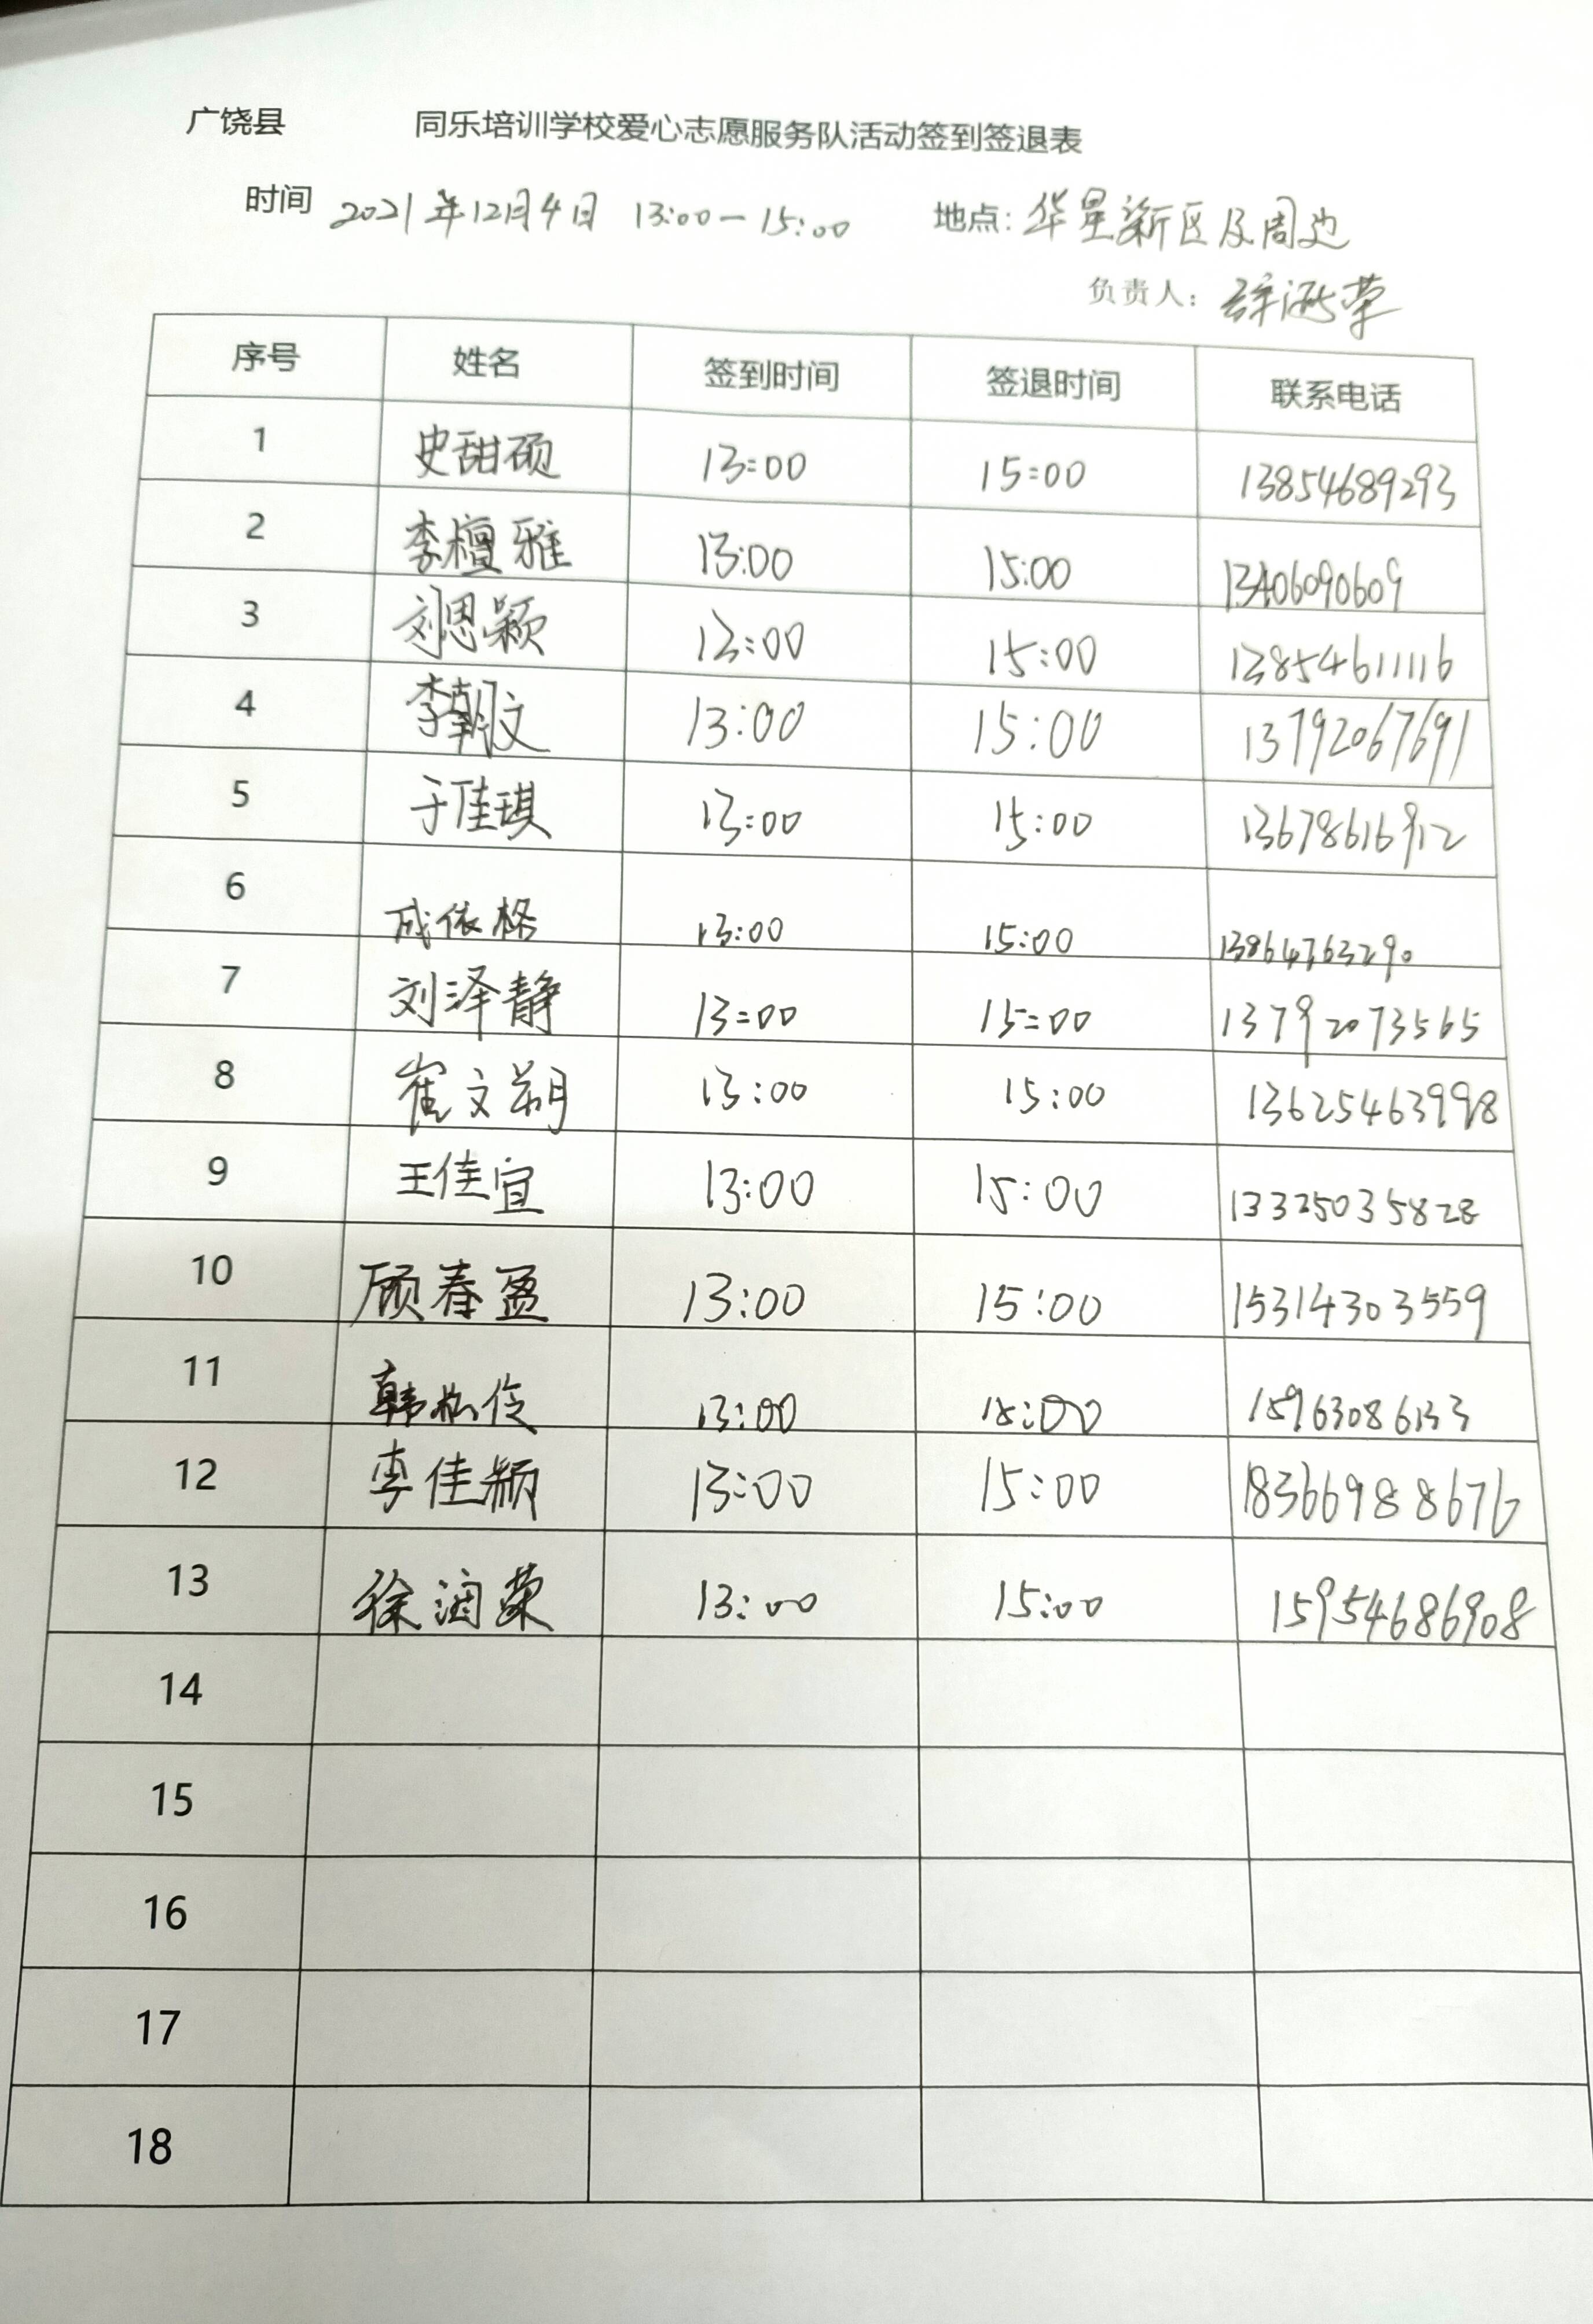 广饶县 同乐培训学校爱心志愿服务队活动签到签退表
时间 2021年12月4日 13:00-15:00 地点: 华星新区及周边
负责人: 徐润荣
序号 姓名 签到时间 签退时间 联系电话
1 史甜硕 13:00 15:00 13854689293
2 李檀雅 13:00 15:00 13406090609
3 刘思颖 13:00 15:00 13854611116
4 李朝文 13:00 15:00 13792067691
5 于佳琪 13:00 15:00 13678616912
6 成依格 13:00 15:00 13864763290
7 刘泽静 13:00 15:00 13792073565
8 崔文朔 13:00 15:00 13625463998
9 王佳宜 13:00 15:00 13325035828
10 顾春盈 13:00 15:00 15314303559
11 韩 13:00 15:00 15963086133
12 李佳颖 13:00 15:00 18366988676
13 徐润荣 13:00 15:00 15954686908
14
15
16
17
18